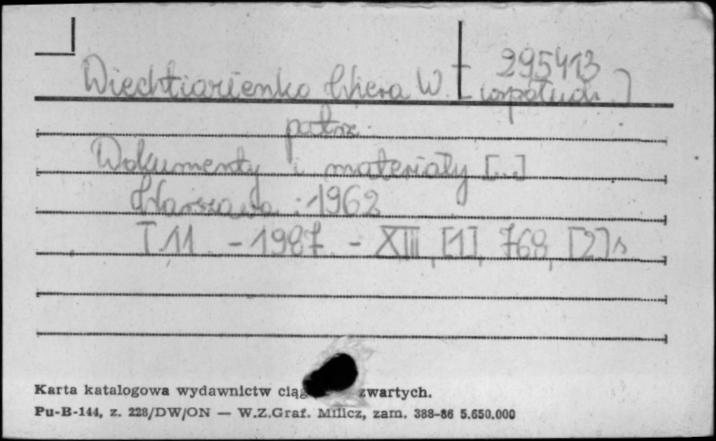 295413
Wiechtiarienko Wiera W. [współudz.]
patrz:
Dokumenty i materiały [...]
Warszawa : 1962
T. 11. - 1987. - XIII, [1], 768, [2] s
Karta katalogowa wydawnictw ciąg zwartych.
Pu-B-144, z. 228/DW/ON — W.Z.Graf. Milicz, zam. 388-86 5.650.000